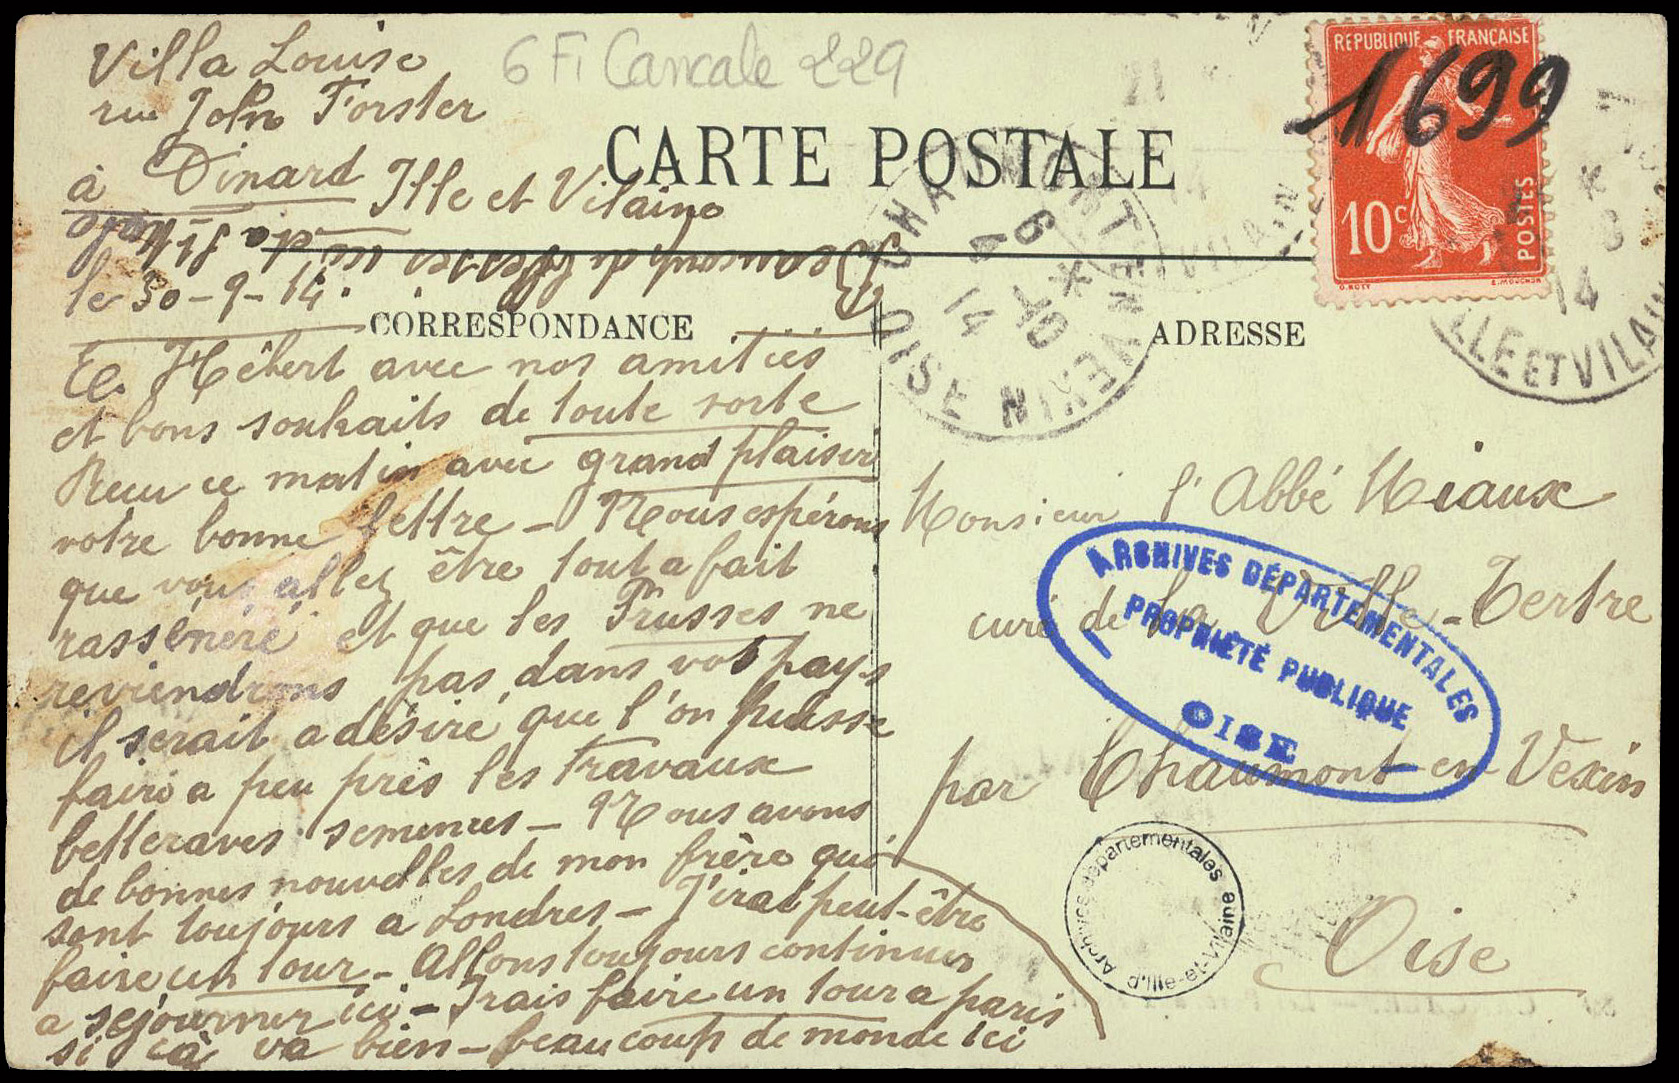 Villa Louise
rue John Forster
à Dinard Ille et Vilaine
le 30-9-14.
6 Fi Cancale 229
CARTE POSTALE
CORRESPONDANCE
ADRESSE
E. Hébert avec nos amitiés
et bons souhaits de toute sorte
Recu ce matin avec grand plaisir
votre bonne lettre - Nous espérons
que vous allez être tout a fait
rasséréné et que les Prusses ne
reviendrons pas dans vos pays
il serait a désiré que l'on puisse
faire a peu près les travaux
betteraves semences - Nous avons
de bonnes nouvelles de mon frère qui
sont toujours a Londres - J'irai peut-être
faire un tour - Allons toujours continuer
a séjourner ici - Irais faire un tour a paris
si cà va bien - beaucoup de monde ici
Monsieur l'Abbé Miaux
curé de la Ville-Tertre
par Chaumont-en-Vexin
Oise
REPUBLIQUE FRANÇAISE
1699
10c
POSTES
O. ROTY
E. MOUCHON
CHAUMONT-EN-VEXIN
OISE
ILLE ET VILAINE
14
ARCHIVES DÉPARTEMENTALES
PROPRIÉTÉ PUBLIQUE
OISE
Archives départementales d'Ille-et-Vilaine